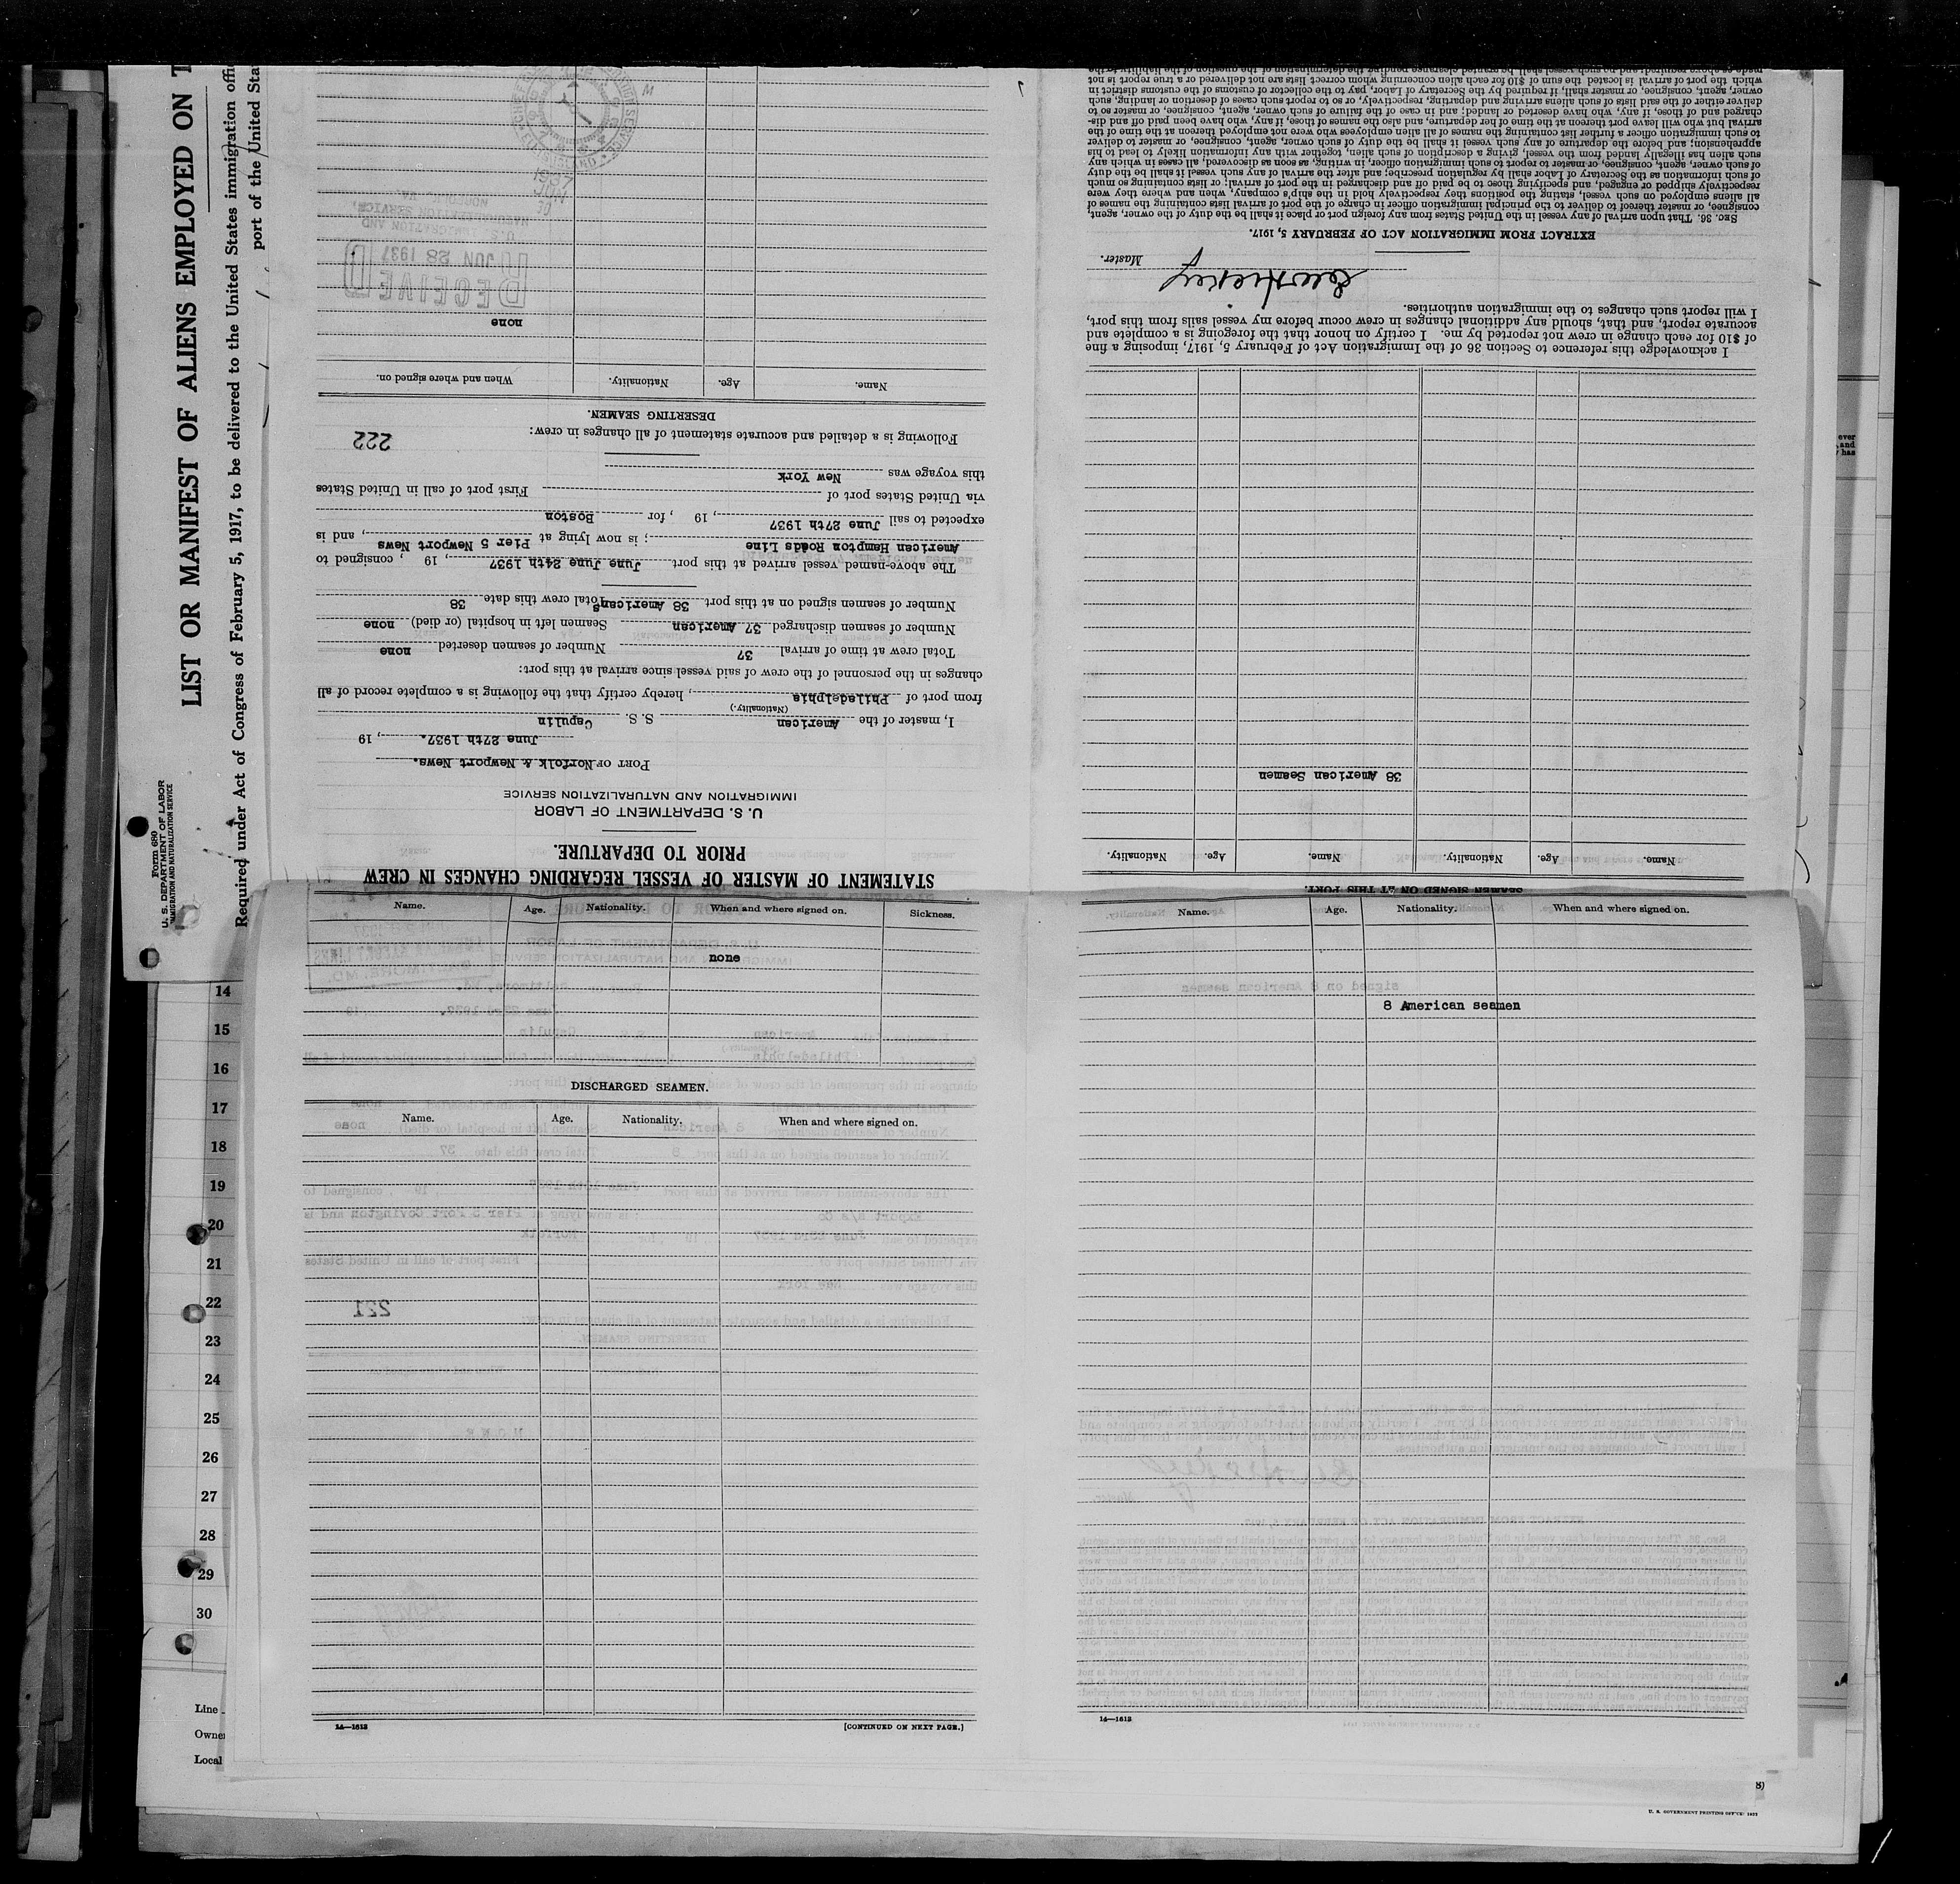 LIST OR MANIFEST OF ALIENS EMPLOYED ON T
Required under Act of Congress of February 5, 1917, to be delivered to the United States immigration offi
port of the United Sta
Form 680
U. S. DEPARTMENT OF LABOR
IMMIGRATION AND NATURALIZATION SERVICE
STATEMENT OF MASTER OF VESSEL REGARDING CHANGES IN CREW
PRIOR TO DEPARTURE.
U. S. DEPARTMENT OF LABOR
IMMIGRATION AND NATURALIZATION SERVICE
PORT OF Norfolk & Newport News.
June 27th 1937. , 19
I, master of the American S. S. Capulin
(Nationality.)
from port of Philadelphia, hereby certify that the following is a complete record of all
changes in the personnel of the crew of said vessel since arrival at this port:
Total crew at time of arrival 37 Number of seamen deserted none
Number of seamen discharged 37 American Seamen left in hospital (or died) none
Number of seamen signed on at this port 38 Americans Total crew this date 38
The above-named vessel arrived at this port June June 24th 1937, 19 , consigned to
American Hampton Roads Line ; is now lying at Pier 5 Newport News, and is
expected to sail June 27th 1937, 19 , for Boston
via United States port of First port of call in United States
this voyage was New York
Following is a detailed and accurate statement of all changes in crew:
222
DESERTING SEAMEN.
Name. Age. Nationality. When and where signed on.
none
RECEIVED
JUN 28 1937
U. S. IMMIGRATION AND
NATURALIZATION SERVICE
NORFOLK, VA.
30
JUN
1937
SEAMEN SIGNED ON AT THIS PORT.
Name. Age. Nationality. Name. Age. Nationality.
38 American Seamen
I acknowledge this reference to Section 36 of the Immigration Act of February 5, 1917, imposing a fine
of $10 for each change in crew not reported by me. I certify on honor that the foregoing is a complete and
accurate report, and that, should any additional changes in crew occur before my vessel sails from this port,
I will report such changes to the immigration authorities.
Master.
EXTRACT FROM IMMIGRATION ACT OF FEBRUARY 5, 1917.
SEC. 36. That upon arrival of any vessel in the United States from any foreign port or place it shall be the duty of the owner, agent,
consignee, or master thereof to deliver to the principal immigration officer in charge of the port of arrival lists containing the names of
all aliens employed on such vessel, stating the positions they respectively hold in the ship's company, when and where they were
respectively shipped or engaged, and specifying those to be paid off and discharged in the port of arrival; or lists containing so much
of such information as the Secretary of Labor shall by regulation prescribe; and after the arrival of any such vessel it shall be the duty
of such owner, agent, consignee, or master to report to such immigration officer, in writing, as soon as discovered, all cases in which any
such alien has illegally landed from the vessel, giving a description of such alien, together with any information likely to lead to his
apprehension; and before the departure of any such vessel it shall be the duty of such owner, agent, consignee, or master to deliver
to such immigration officer a further list containing the names of all alien employees who were not employed thereon at the time of the
arrival but who will leave port thereon at the time of her departure, and also the names of those, if any, who have been paid off and dis-
charged and of those, if any, who have deserted or landed; and in case of the failure of such owner, agent, consignee, or master to
deliver either of the said lists of such aliens arriving and departing, respectively, or so to report such cases of desertion or landing, such
owner, agent, consignee, or master shall, if required by the Secretary of Labor, pay to the collector of customs of the customs district in
which the port of arrival is located the sum of $10 for each alien concerning whom correct lists are not delivered or a true report is not
made as above required; and no such vessel shall be granted clearance pending the determination of the question of the liability to the
Name. Age. Nationality. When and where signed on. Sickness.
none
DISCHARGED SEAMEN.
Name. Age. Nationality. When and where signed on.
221
14—1512 [CONTINUED ON NEXT PAGE.]
Name. Age. Nationality. When and where signed on.
8 American seamen
14—1512
14
15
16
17
18
19
20
21
22
23
24
25
26
27
28
29
30
Line
Owne
Local
ever
and
has
8)
U. S. GOVERNMENT PRINTING OFFICE: 1932